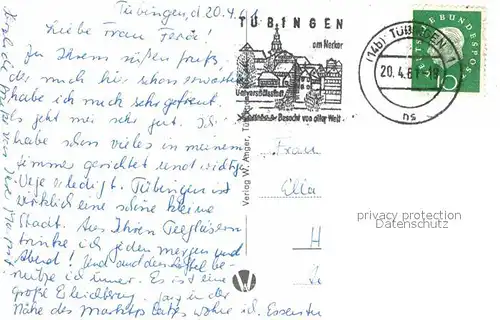 Tübingen, d. 20.4.61
Liebe Frau
Zu Ihrem süßen Gruß,
der mich hier schon erwartete
habe ich mich sehr gefreut.
Es geht mir sehr gut. Ich
habe schon vieles in meinem
Zimmer gerichtet und wichtige
Wege erledigt. Tübingen ist
wirklich eine schöne kleine
Stadt. Aus Ihren Teegläsern
trinke ich jeden morgen und
Abend! Und den Löffel be-
nütze ich immer. Es ist eine
große Erleichterung. in der
Nähe des Marktplatzes wohne ich. Essen
TÜBINGEN
am Neckar
Universitätsstadt
Besucht von aller Welt
(14b) TÜBINGEN 1
20.4.61-19
ns
DEUTSCHE BUNDESPOST
10
Verlag W. Anger, Tübingen
Frau
Ella
H
privacy protection
Datenschutz